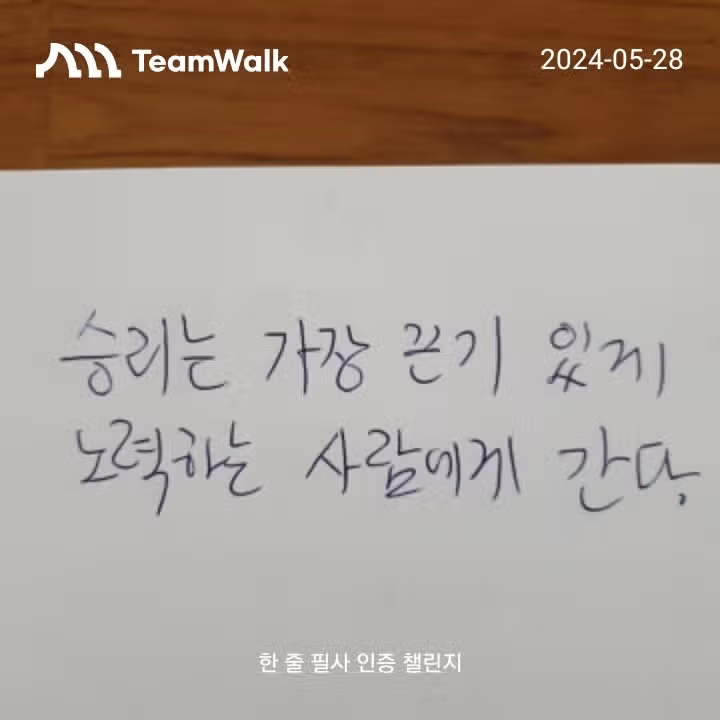 TeamWalk 2024-05-28
승리는 가장 끈기 있게
노력하는 사람에게 간다,
한 줄 필사 인증 챌린지